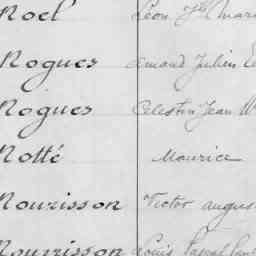 Noel Léon Jh Mari
Nogues Armand Julien
Nogues Celestin Jean M
Notté Maurice
Nourisson Victor Augus
Nourrisson Louis Pascal